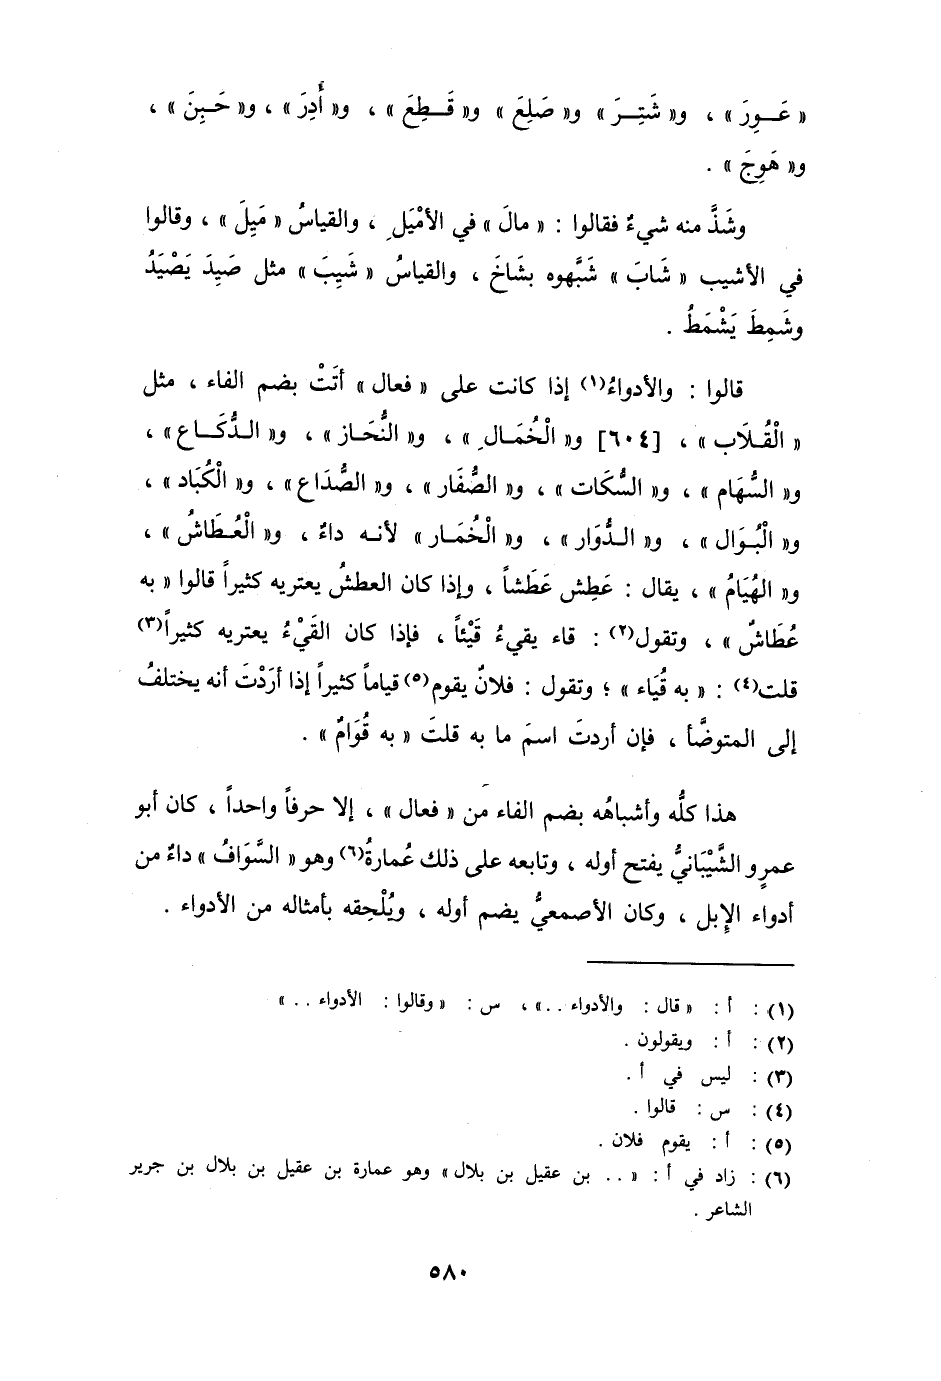 « عَـوِرَ » ، و« شَتِـرَ » و« صَلِعَ » و« قَـطِعَ » ، و« أَدِرَ » ، و« حَـبِنَ » ،
و« هَوِجَ » .
وشَذَّ منه شيءٌ فقالوا : « مالَ » في الأمْيَلِ ، والقياسُ « مَيِلَ » ، وقالوا
في الأشيب « شَابَ » شَبَّهوه بشَاخَ ، والقياسُ « شَيِبَ » مثل صَيِدَ يَصْيَدُ
وشَمِطَ يَشْمَطُ .
قالوا : والأدواءُ(١) إذا كانت على « فعال » أتَتْ بضم الفاء ، مثل
« الْقُـلَاب » ، [٦٠٤] و« الْخُمَـالِ » ، و« النُّحَـاز » ، و« الـدُّكَـاع » ،
و« السُّهَام » ، و« السُّكَات » ، و« الصُّفَار » ، و« الصُّدَاع » ، و« الْكُبَاد » ،
و« الْبُـوَال » ، و« الـدُّوَار » ، و« الْخُمَـار » لأنـه داءٌ ، و« الْعُـطَاشُ » ،
و« الهُيَامُ » ، يقال : عَطِش عَطَشاً ، وإذا كان العطشُ يعتريه كثيراً قالوا « به
عُطَاشٌ » ، وتقول(٢) : قاء يقيءُ قَيْئاً ، فإذا كان القَيْءُ يعتريه كثيراً(٣)
قلت(٤) : « به قُيَاء » ؛ وتقول : فلانٌ يقوم(٥) قياماً كثيراً إذا أرَدْتَ أنه يختلفُ
إلى المتوضَّأ ، فإن أردتَ اسمَ ما به قلتَ « به قُوَامٌ » .
هذا كلُّه وأشباهُه بضم الفاء من « فعال » ، إلا حرفاً واحداً ، كان أبو
عمرٍو الشَّيْبَانيُّ يفتح أوله ، وتابعه على ذلك عُمارةُ(٦) وهو « السَّوَافُ » داءٌ من
أدواء الإبل ، وكان الأصمعيُّ يضم أوله ، ويُلْحِقه بأمثاله من الأدواء .
(١) : أ : « قال : والأدواء ..» ، س : « وقالوا : الأدواء .. »
(٢) : أ : ويقولون .
(٣) : ليس في أ .
(٤) : س : قالوا .
(٥) : أ : يقوم فلان .
(٦) : زاد في أ : « .. بن عقيل بن بلال » وهو عمارة بن عقيل بن بلال بن جرير
الشاعر .
٥٨٠